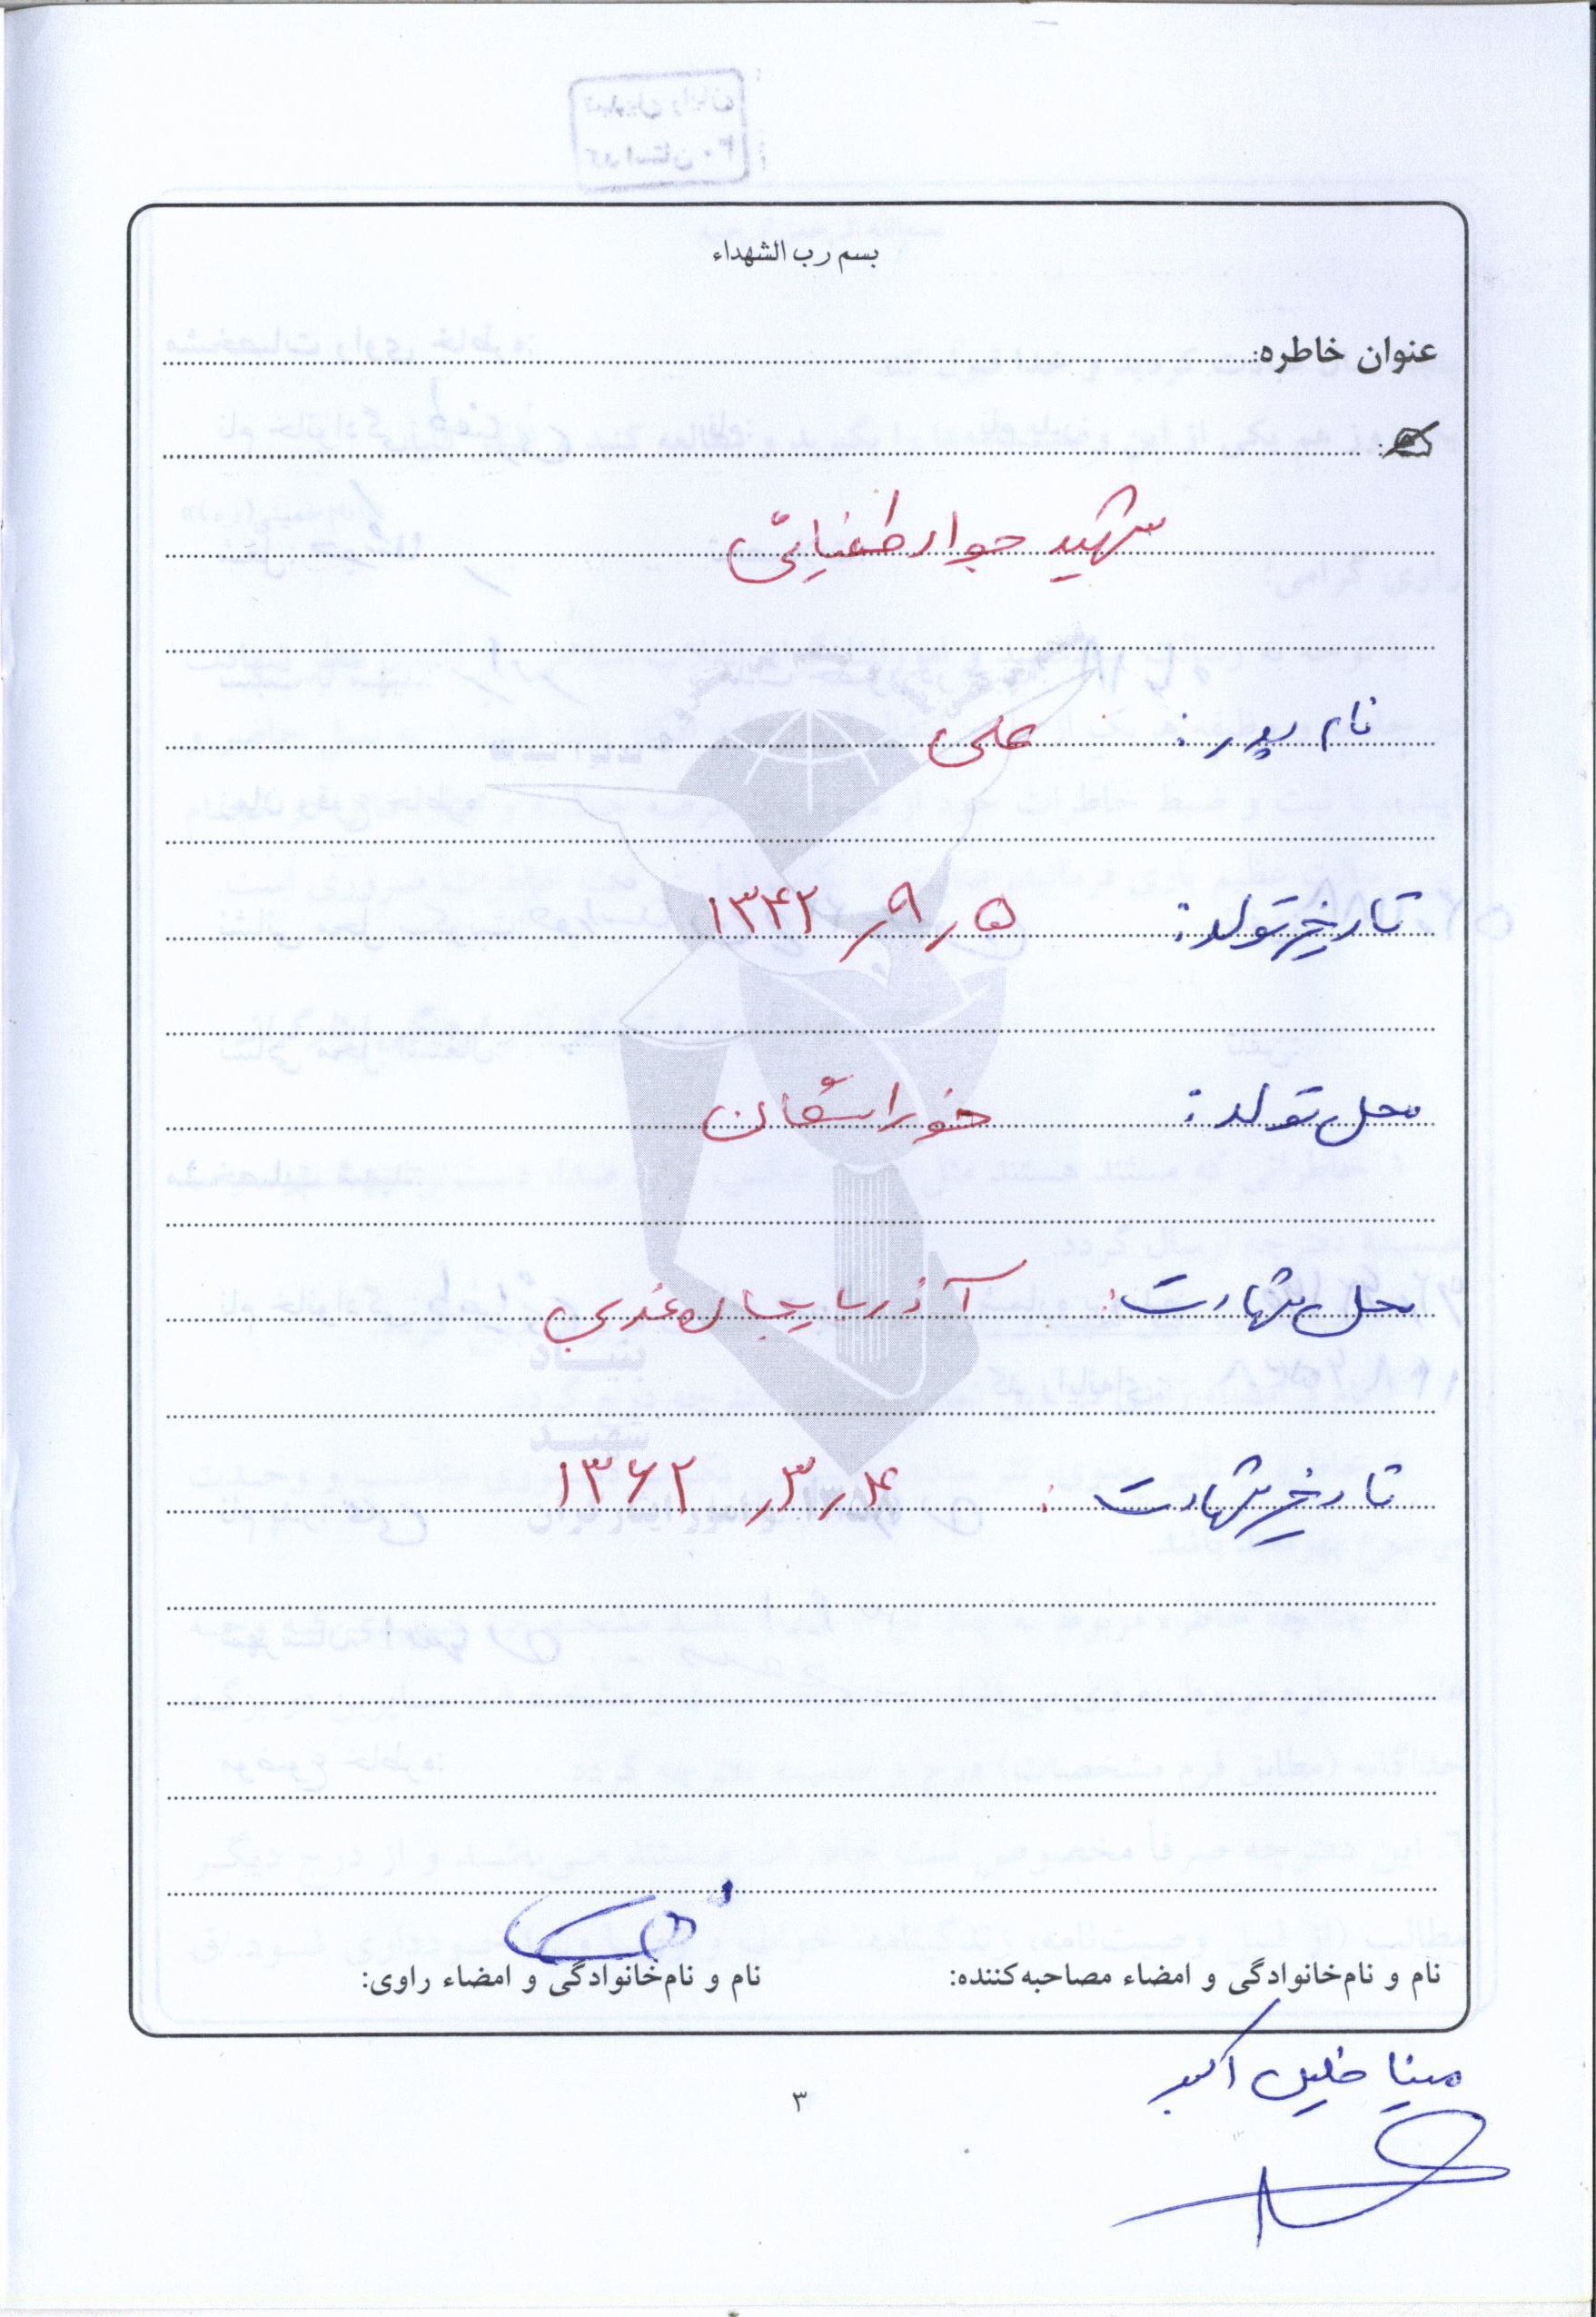 بسم رب الشهداء
عنوان خاطره:
شهید جواد طغیانی
نام پدر: علی
تاریخ تولد: ۵ ر ۹ ر ۱۳۴۲
محل تولد: خوراسگان
محل شهادت: آذربایجان غربی
تاریخ شهادت: ۴ ر ۳ ر ۱۳۶۲
نام و نام‌خانوادگی و امضاء مصاحبه‌کننده: نام و نام‌خانوادگی و امضاء راوی:
مینا خلیل اکبر
۳